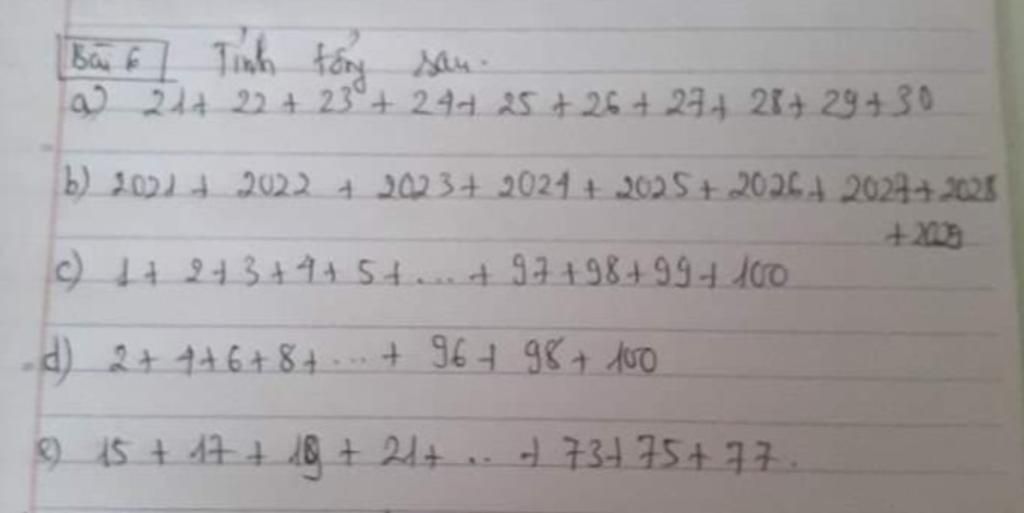 Bài 6 Tính tổng sau.
a) 21+ 22 + 23 + 24+ 25 + 26 + 27+ 28+ 29+30
b) 2021+ 2022 + 2023+ 2024 + 2025+ 2026+ 2027+ 2028
+ 2029
c) 1+ 2+3+4+5+...+ 97+98+99+100
d) 2+ 4+6+8+...+ 96+ 98+ 100
e) 15 + 17 + 19 + 21+ .. + 73+75+77.